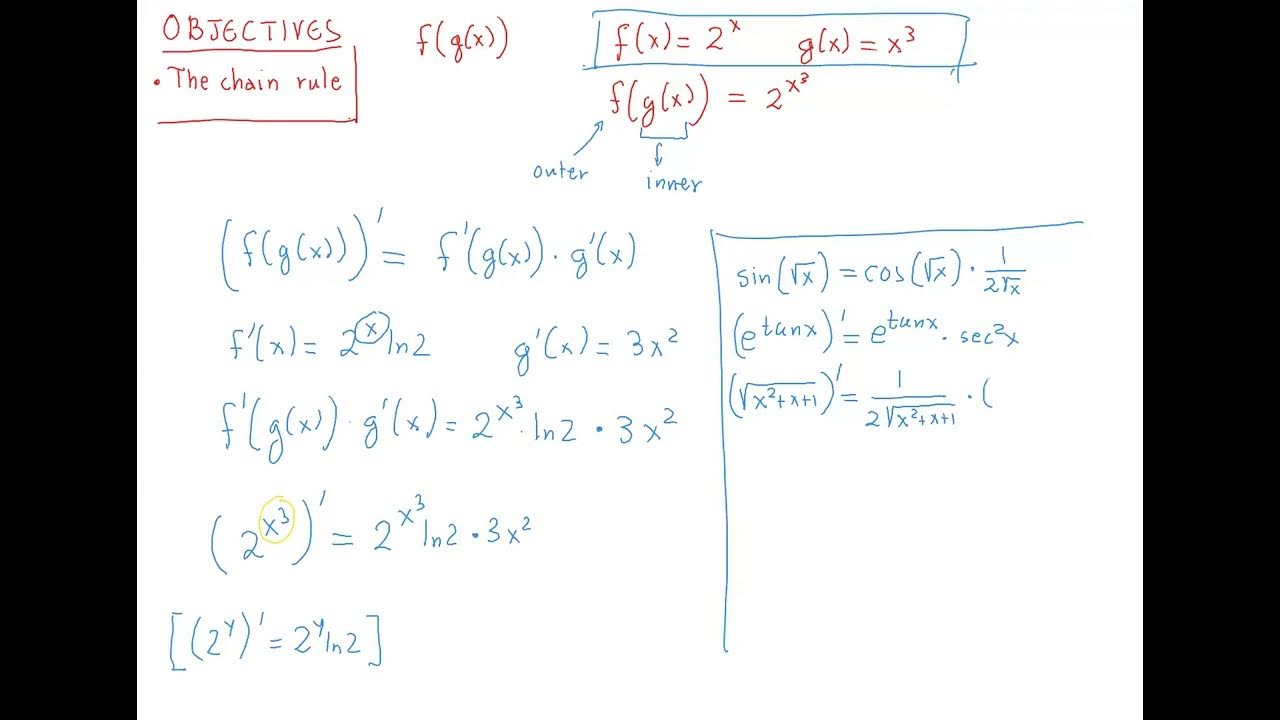 OBJECTIVES
• The chain rule
f(g(x))
f(x) = 2^x    g(x) = x³
f(g(x)) = 2^x³
outer
inner
(f(g(x)))' = f'(g(x)) · g'(x)
f'(x) = 2^x ln2    g'(x) = 3x²
f'(g(x)) · g'(x) = 2^x³ · ln2 · 3x²
(2^x³)' = 2^x³ ln2 · 3x²
[(2^y)' = 2^y ln2]
sin(√x) = cos(√x) · 1/2√x
(e^tanx)' = e^tanx · sec²x
(√x²+x+1)' = 1/2√x²+x+1 · (